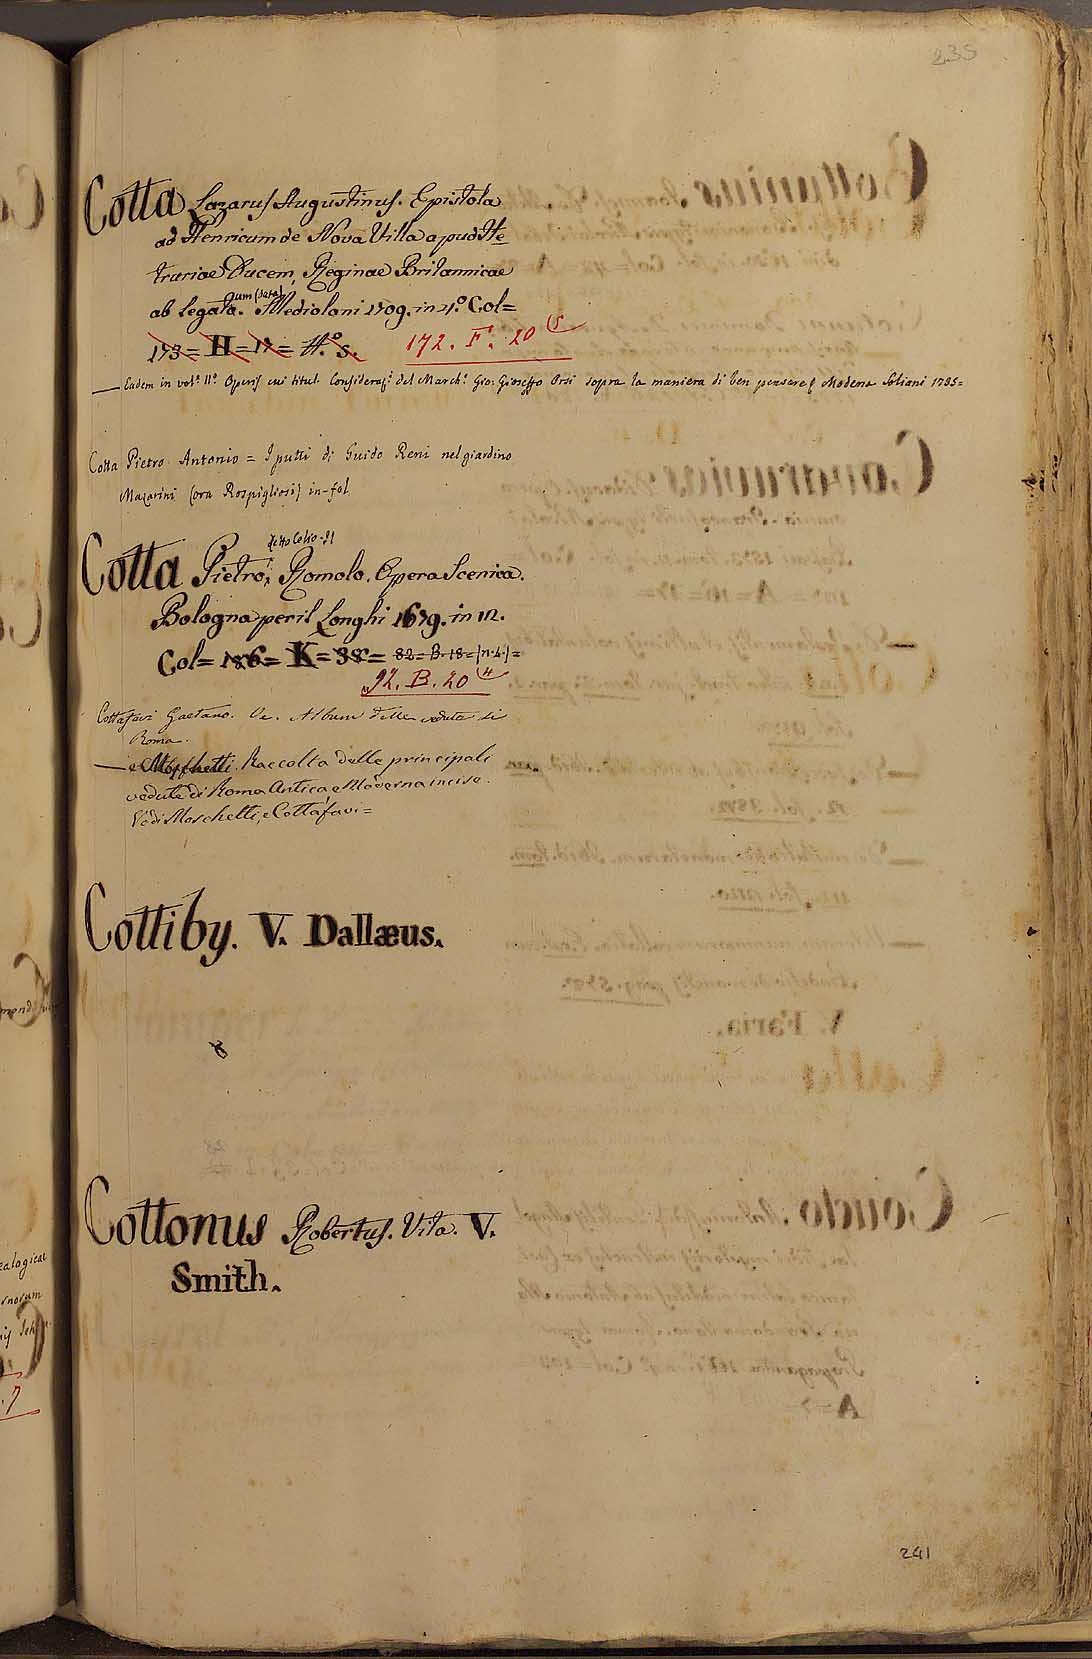 235
Cotta Lazarus Augustinus. Epistola
ad Henricum de Nova Villa apud He-
truriae Ducem, Reginae Britannicae
ab legatum. Mediolani 1709. in 4.º Col=
173 = H = 17 = H.º 5. 172. F. 20 (5
— Eadem in vol.º II.º Operis cui titul. Consideraz.i del March.e Gio: Gioseffo Orsi sopra la maniera di ben pensare & Modena Soliani 1735=
Cotta Pietro Antonio = I putti di Guido Reni nel giardino
Mazarini (ora Rospigliosi) in-fol
detto Celio.
Cotta Pietro, Romolo. Opera Scenica.
Bologna per il Longhi 1679. in 12.
Col= 186= K= 38= 82= B. 18= (n. 4.)=
92. B. 20 (4
Cottafavi Gaetano. Album delle vedute di
Roma.
— e Moschetti. Raccolta delle principali
vedute di Roma Antica e Moderna incise.
Vedi Moschetti, e Cottafavi=
Cottiby. V. Dallæus.
Cottonus Robertus. Vita. V.
Smith.
241